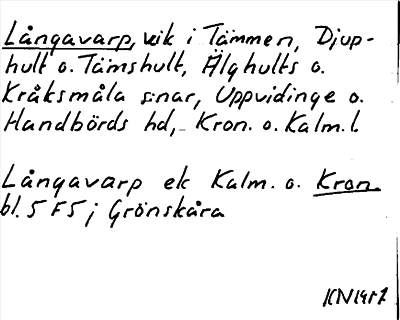 Långavarp, vik i Tämmen, Djup-
hult o. Tämshult, Älghults o.
Kråksmåla s:nar, Uppvidinge o.
Handbörds hd, Kron. o. Kalm. l.
Långavarp ek Kalm. o. Kron.
bl. 5 F5 j Grönskåra